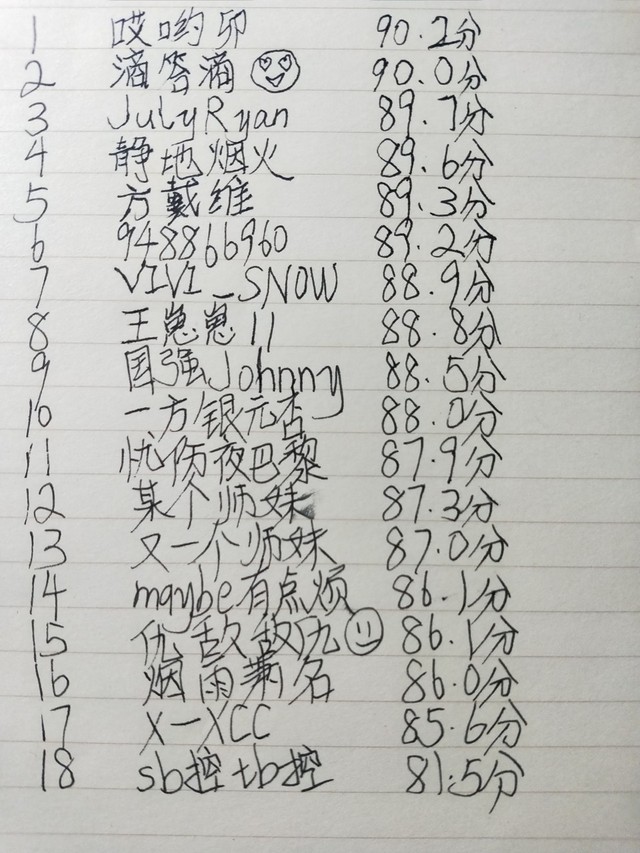 1 哎哟卯 90.2分
2 滴答滴 90.0分
3 JulyRyan 89.7分
4 静地烟火 89.6分
5 方戴维 89.3分
6 948866960 89.2分
7 VIVI_SNOW 88.9分
8 王崽崽11 88.8分
9 国强Johnny 88.5分
10 一方银元杏 88.0分
11 忧伤夜巴黎 87.9分
12 某个师妹 87.3分
13 又一个师妹 87.0分
14 maybe有点烦 86.1分
15 仇敌敌仇 86.1分
16 烟雨 名 86.0分
17 X一XCC 85.6分
18 sb控tb控 81.5分